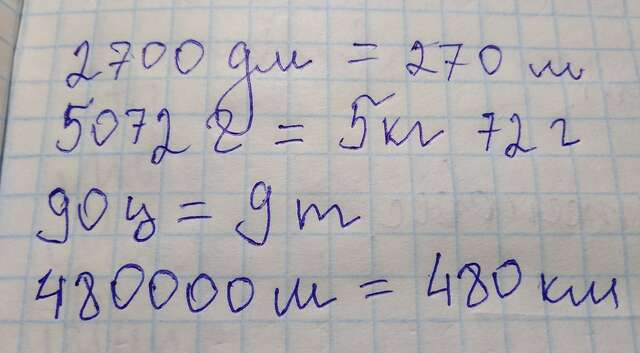 2700 дм = 270 м
5072 г = 5кг 72 г
90 ц = 9 т
480000 м = 480 км